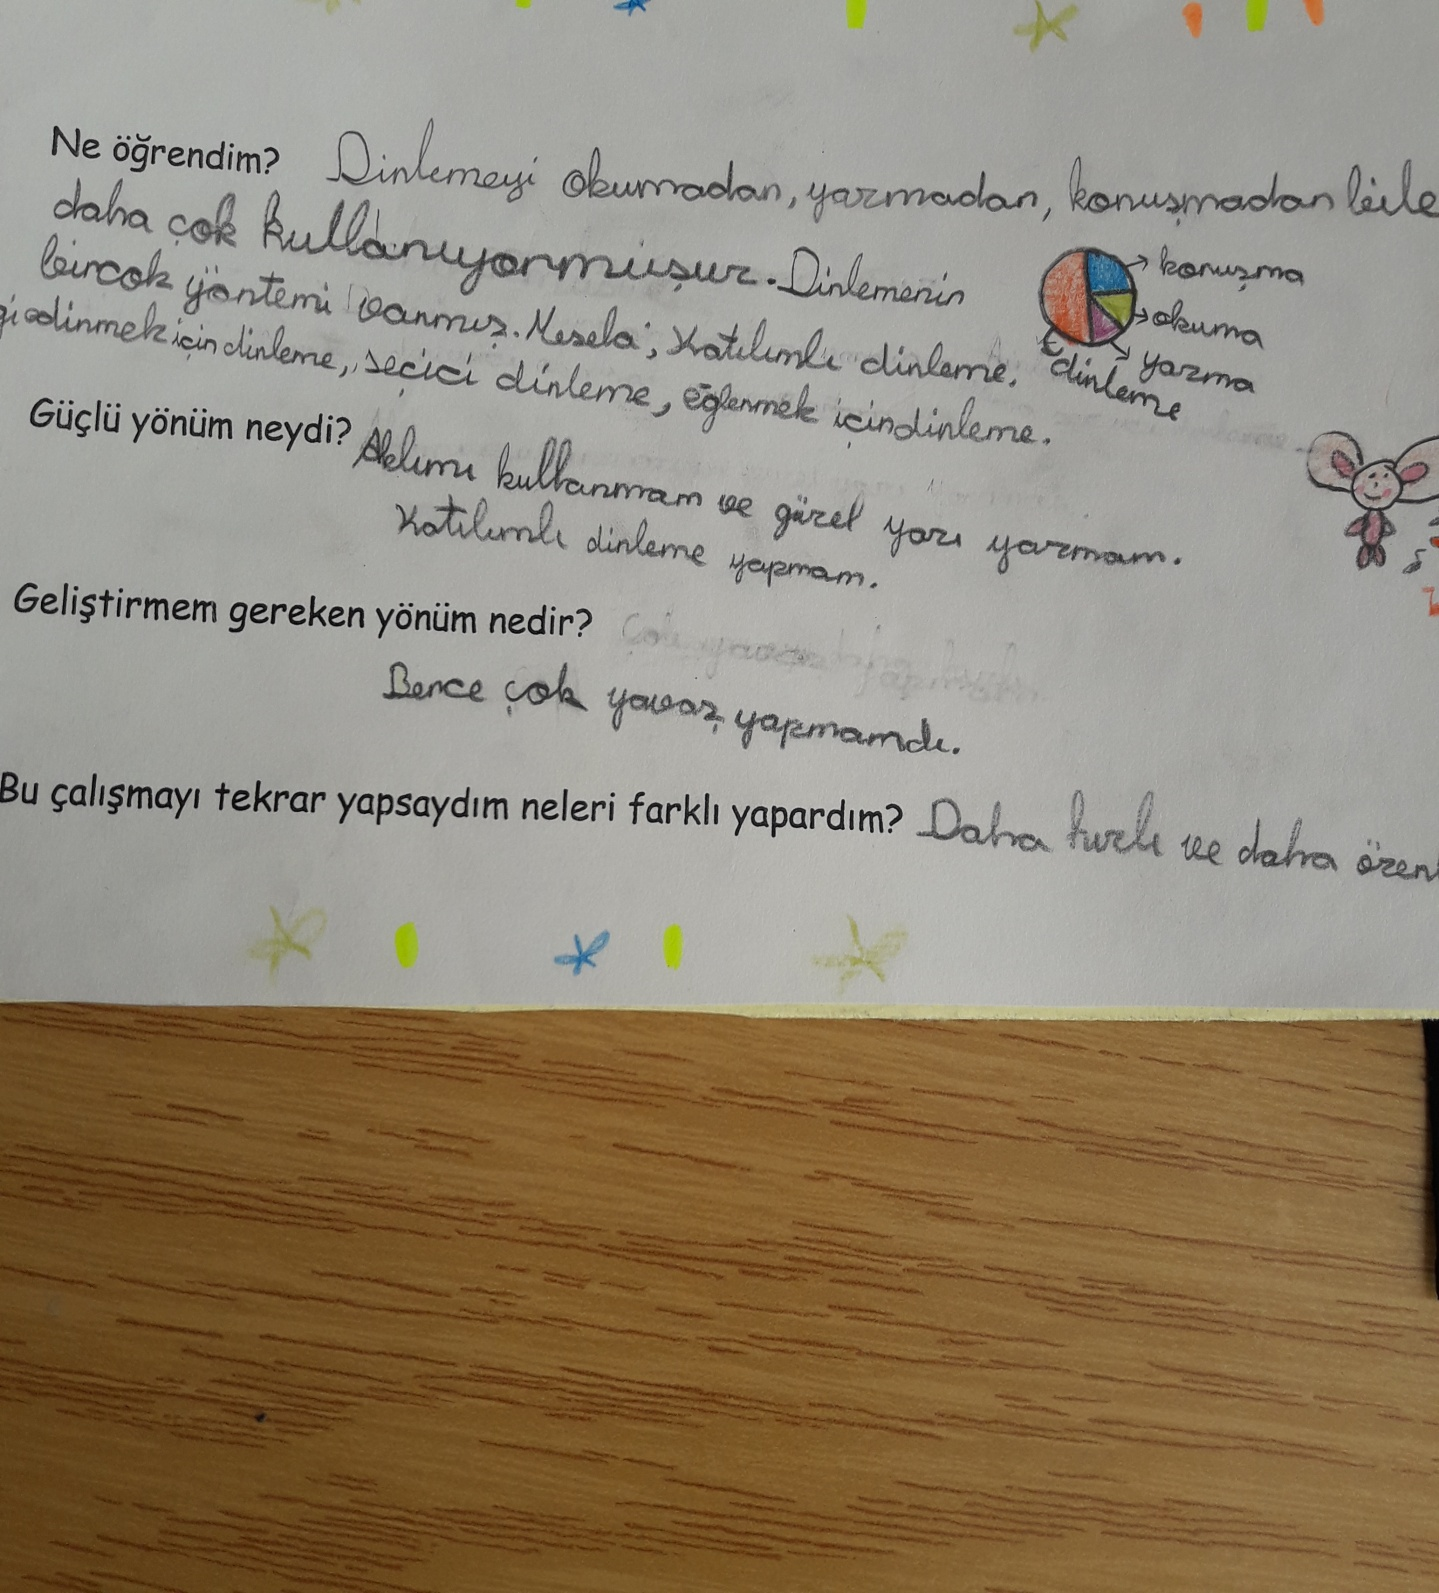 Ne öğrendim? Dinlemeyi okumadan, yazmadan, konuşmadan bile
daha çok kullanıyormuşuz. Dinlemenin
birçok yöntemi varmış. Mesela; Katılımlı dinleme,
gi edinmek için dinleme, seçici dinleme, eğlenmek için dinleme.
konuşma
okuma
yazma
dinleme
Güçlü yönüm neydi? Aklımı kullanmam ve güzel yazı yazmam.
Katılımlı dinleme yapmam.
Geliştirmem gereken yönüm nedir?
Bence çok yavaş yapmamdı.
Bu çalışmayı tekrar yapsaydım neleri farklı yapardım? Daha hızlı ve daha özenl